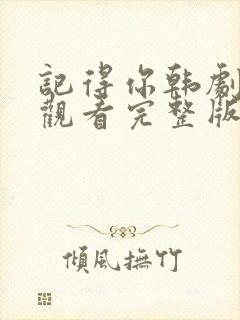 記得你韩劇
觀看完整版
傾風撫竹